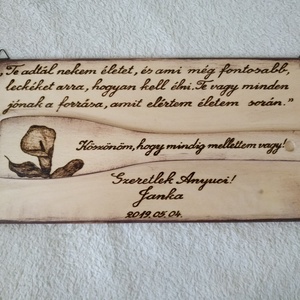 „Te adtál nekem életet, és ami még fontosabb,
leckéket arra, hogyan kell élni. Te vagy minden
jónak a forrása, amit elértem életem során."
Köszönöm, hogy mindig mellettem vagy!
Szeretlek Anyuci!
Janka
2019.05.04.